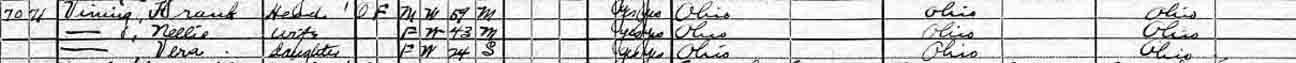 70 71 Vining, Frank Head O F M W 59 M Yes Yes Ohio Ohio Ohio
—, Nellie wife F W 43 M Yes Yes Ohio Ohio Ohio
— Vera daughter F W 24 S Yes Yes Ohio Ohio Ohio